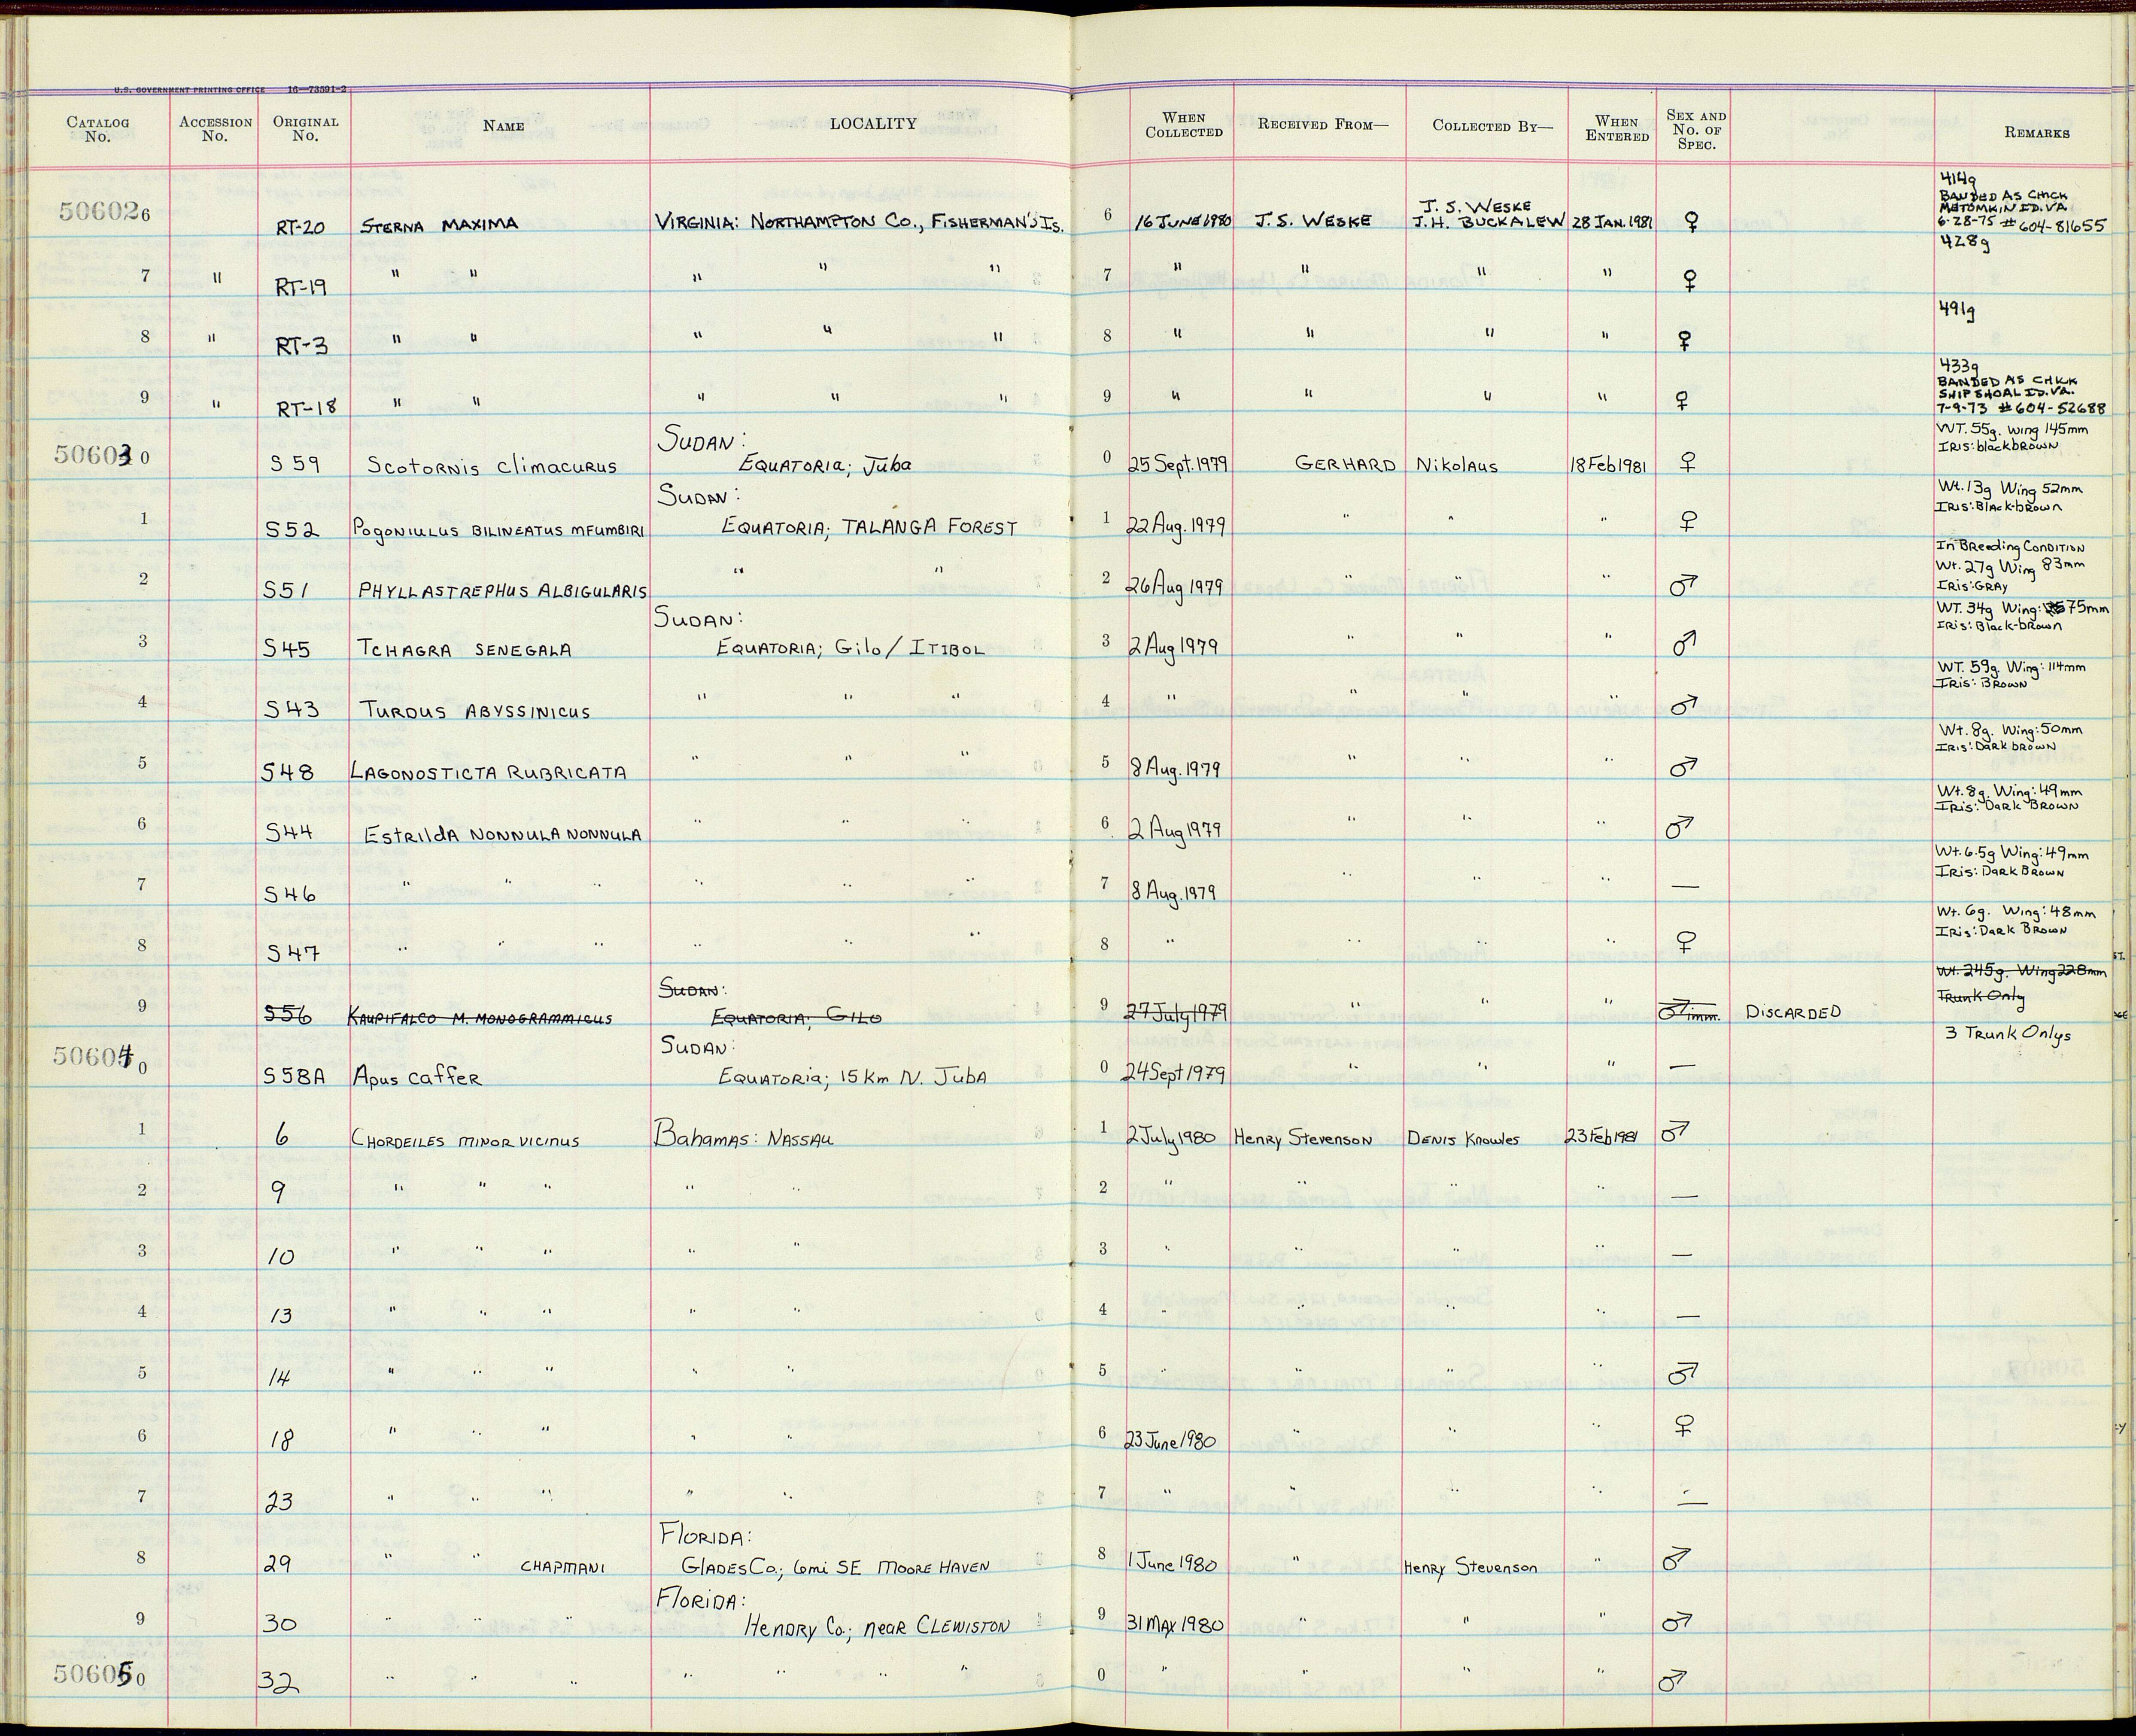 U.S. GOVERNMENT PRINTING OFFICE 16—73591-2
CATALOG No. ACCESSION No. ORIGINAL No. NAME LOCALITY WHEN COLLECTED RECEIVED FROM— COLLECTED BY— WHEN ENTERED SEX AND No. OF SPEC. REMARKS
506026 RT-20 STERNA MAXIMA VIRGINIA: NORTHAMPTON CO., FISHERMAN'S IS. 6 16 JUNE 1980 J. S. WESKE J. S. WESKE J. H. BUCKALEW 28 JAN. 1981 ♀ 414g BANDED AS CHICK METOMKIN ID. VA. 6-28-75 # 604-81655
7 " RT-19 " " " " " 7 " " " " ♀ 428g
8 " RT-3 " " " " " 8 " " " " ♀ 491g
9 " RT-18 " " " " " 9 " " " " ♀ 433g BANDED AS CHICK SHIP SHOAL ID. VA. 7-9-73 # 604-52688
506030 S 59 Scotornis climacurus SUDAN: EQUATORIA; Juba 0 25 Sept. 1979 GERHARD Nikolaus 18 Feb 1981 ♀ WT. 55g. wing 145mm IRIS: blackbrown
1 S52 Pogoniulus BILINEATUS MFUMBIRI SUDAN: EQUATORIA; TALANGA FOREST 1 22 Aug. 1979 " " " ♀ Wt. 13g Wing 52mm IRIS: Black-brown
2 S51 PHYLLASTREPHUS ALBIGULARIS " " 2 26 Aug 1979 " " " ♂ In Breeding Condition Wt. 27g Wing 83mm Iris: GRAY
3 S45 TCHAGRA SENEGALA SUDAN: EQUATORIA; Gilo / ITIBOL 3 2 Aug 1979 " " " ♂ WT. 34g Wing: 75mm IRIS: Black-brown
4 S43 TURDUS ABYSSINICUS " " " 4 " " " " ♂ WT. 59g. Wing: 114mm IRIS: BROWN
5 S48 LAGONOSTICTA RUBRICATA " " " 5 8 Aug. 1979 " " " ♂ Wt. 8g. Wing: 50mm IRIS: DARK BROWN
6 S44 Estrilda NONNULA NONNULA " " " 6 2 Aug 1979 " " " ♂ Wt. 8g. Wing: 49mm IRIS: Dark BROWN
7 S46 " " " " " " 7 8 Aug. 1979 " " " — Wt. 6.5g Wing: 49mm IRIS: DARK BROWN
8 S47 " " " " " " 8 " " " " ♀ Wt. 6g. Wing: 48mm IRIS: DARK BROWN
9 S56 KAUPIFALCO M. MONOGRAMMICUS SUDAN: EQUATORIA; GILO 9 27 July 1979 " " " ♂ imm. DISCARDED Wt. 245g. Wing 228mm Trunk Only
506040 S58A Apus caffer SUDAN: EQUATORIA; 15 km N. JUBA 0 24 Sept 1979 " " " — 3 Trunk Onlys
1 6 CHORDEILES MINOR VICINUS Bahamas: NASSAU 1 2 July 1980 Henry Stevenson DENIS Knowles 23 Feb 1981 ♂
2 9 " " " " " 2 " " " " —
3 10 " " " " " 3 " " " " —
4 13 " " " " " 4 " " " " —
5 14 " " " " " 5 " " " " ♂
6 18 " " " " " 6 23 June 1980 " " " ♀
7 23 " " " " " 7 " " " " —
8 29 " " CHAPMANI FLORIDA: GLADES Co.; 6mi SE MOORE HAVEN 8 1 June 1980 " Henry Stevenson " ♂
9 30 " " " FLORIDA: HENDRY Co.; near CLEWISTON 9 31 MAY 1980 " " " ♂
506050 32 " " " " " " " 0 " " " " ♂